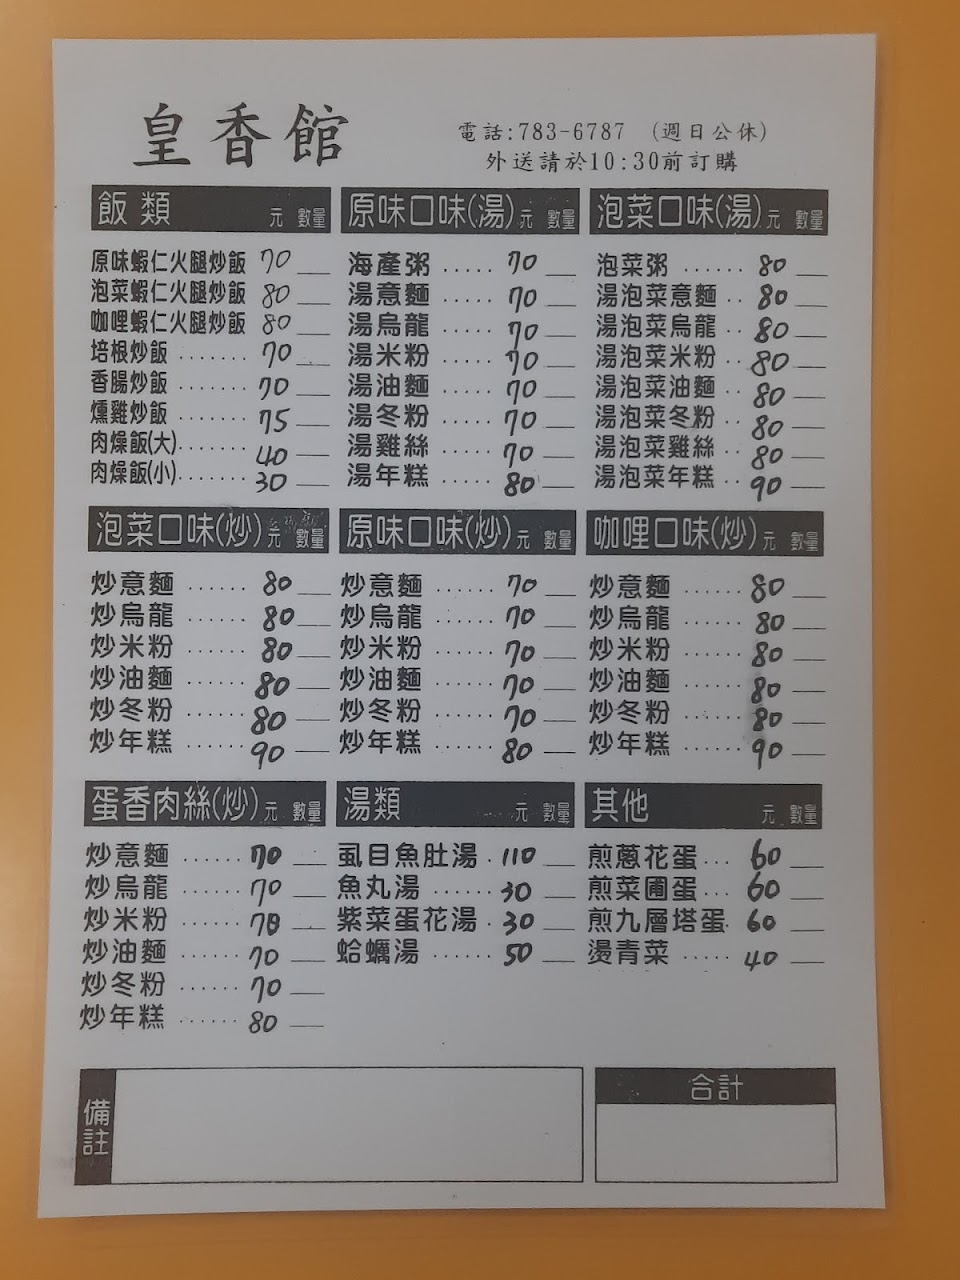 皇香館
電話:783-6787 (週日公休)
外送請於10:30前訂購
飯類 元 數量
原味蝦仁火腿炒飯 70
泡菜蝦仁火腿炒飯 80
咖哩蝦仁火腿炒飯 80
培根炒飯 ....... 70
香腸炒飯 ....... 70
燻雞炒飯 ....... 75
肉燥飯(大)....... 40
肉燥飯(小)....... 30
原味口味(湯) 元 數量
海產粥 ..... 70
湯意麵 ..... 70
湯烏龍 ..... 70
湯米粉 ..... 70
湯油麵 ..... 70
湯冬粉 ..... 70
湯雞絲 ..... 70
湯年糕 ..... 80
泡菜口味(湯) 元 數量
泡菜粥 ...... 80
湯泡菜意麵 .. 80
湯泡菜烏龍 .. 80
湯泡菜米粉 .. 80
湯泡菜油麵 .. 80
湯泡菜冬粉 .. 80
湯泡菜雞絲 .. 80
湯泡菜年糕 .. 90
泡菜口味(炒) 元 數量
炒意麵 ...... 80
炒烏龍 ...... 80
炒米粉 ...... 80
炒油麵 ...... 80
炒冬粉 ...... 80
炒年糕 ...... 90
原味口味(炒) 元 數量
炒意麵 ...... 70
炒烏龍 ...... 70
炒米粉 ...... 70
炒油麵 ...... 70
炒冬粉 ...... 70
炒年糕 ...... 80
咖哩口味(炒) 元 數量
炒意麵 ...... 80
炒烏龍 ...... 80
炒米粉 ...... 80
炒油麵 ...... 80
炒冬粉 ...... 80
炒年糕 ...... 90
蛋香肉絲(炒) 元 數量
炒意麵 ...... 70
炒烏龍 ...... 70
炒米粉 ...... 70
炒油麵 ...... 70
炒冬粉 ...... 70
炒年糕 ...... 80
湯類 元 數量
虱目魚肚湯 . 110
魚丸湯 ..... 30
紫菜蛋花湯 . 30
蛤蠣湯 ..... 50
其他 元 數量
煎蔥花蛋 ... 60
煎菜圃蛋 ... 60
煎九層塔蛋 . 60
燙青菜 ..... 40
備註
合計